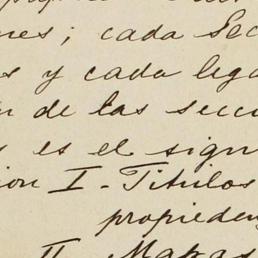 nes; cada Sec
s y cada lega
n de las secc
s es el sign
ion I - Titulos
propieden
II Mapas